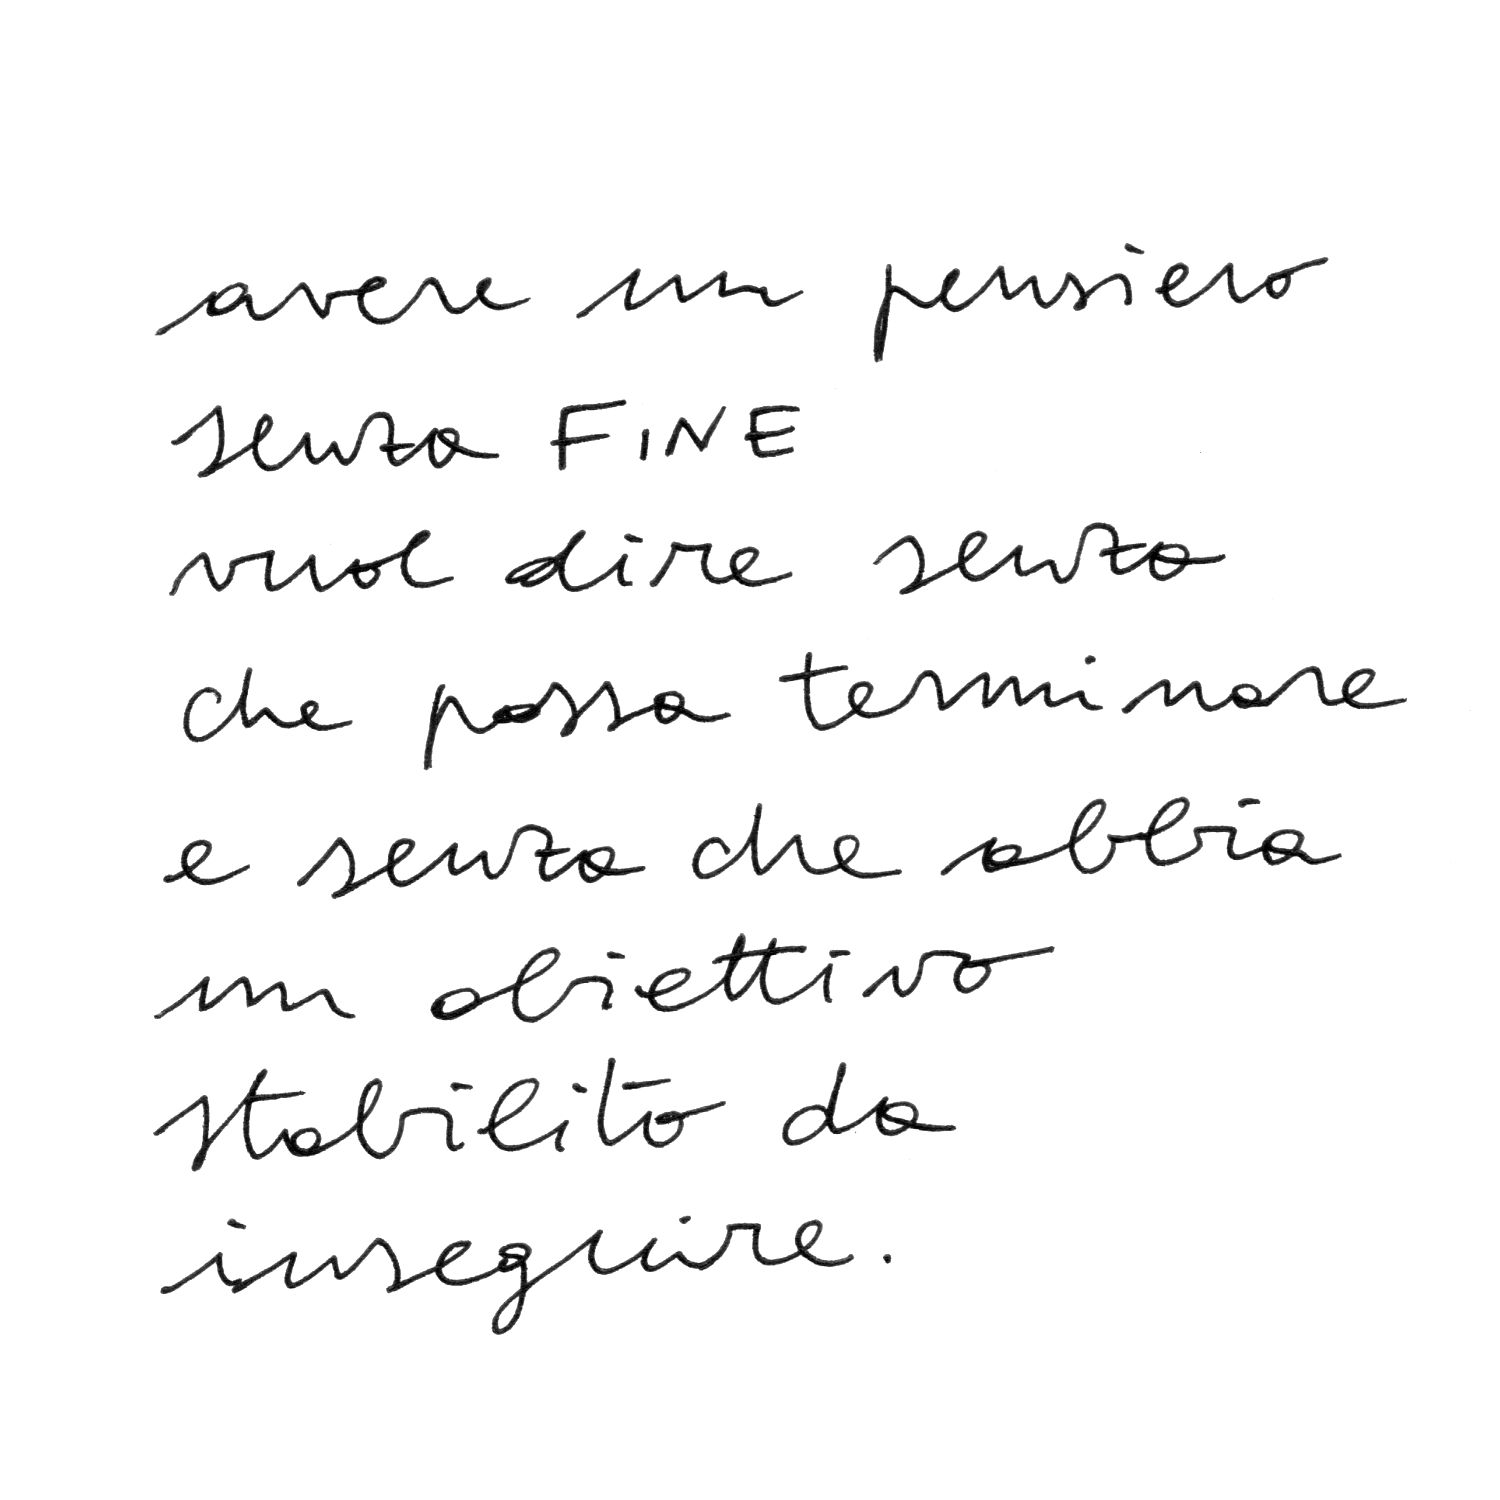 avere un pensiero
senza FINE
vuol dire senza
che possa terminare
e senza che abbia
un obiettivo
stabilito da
inseguire.